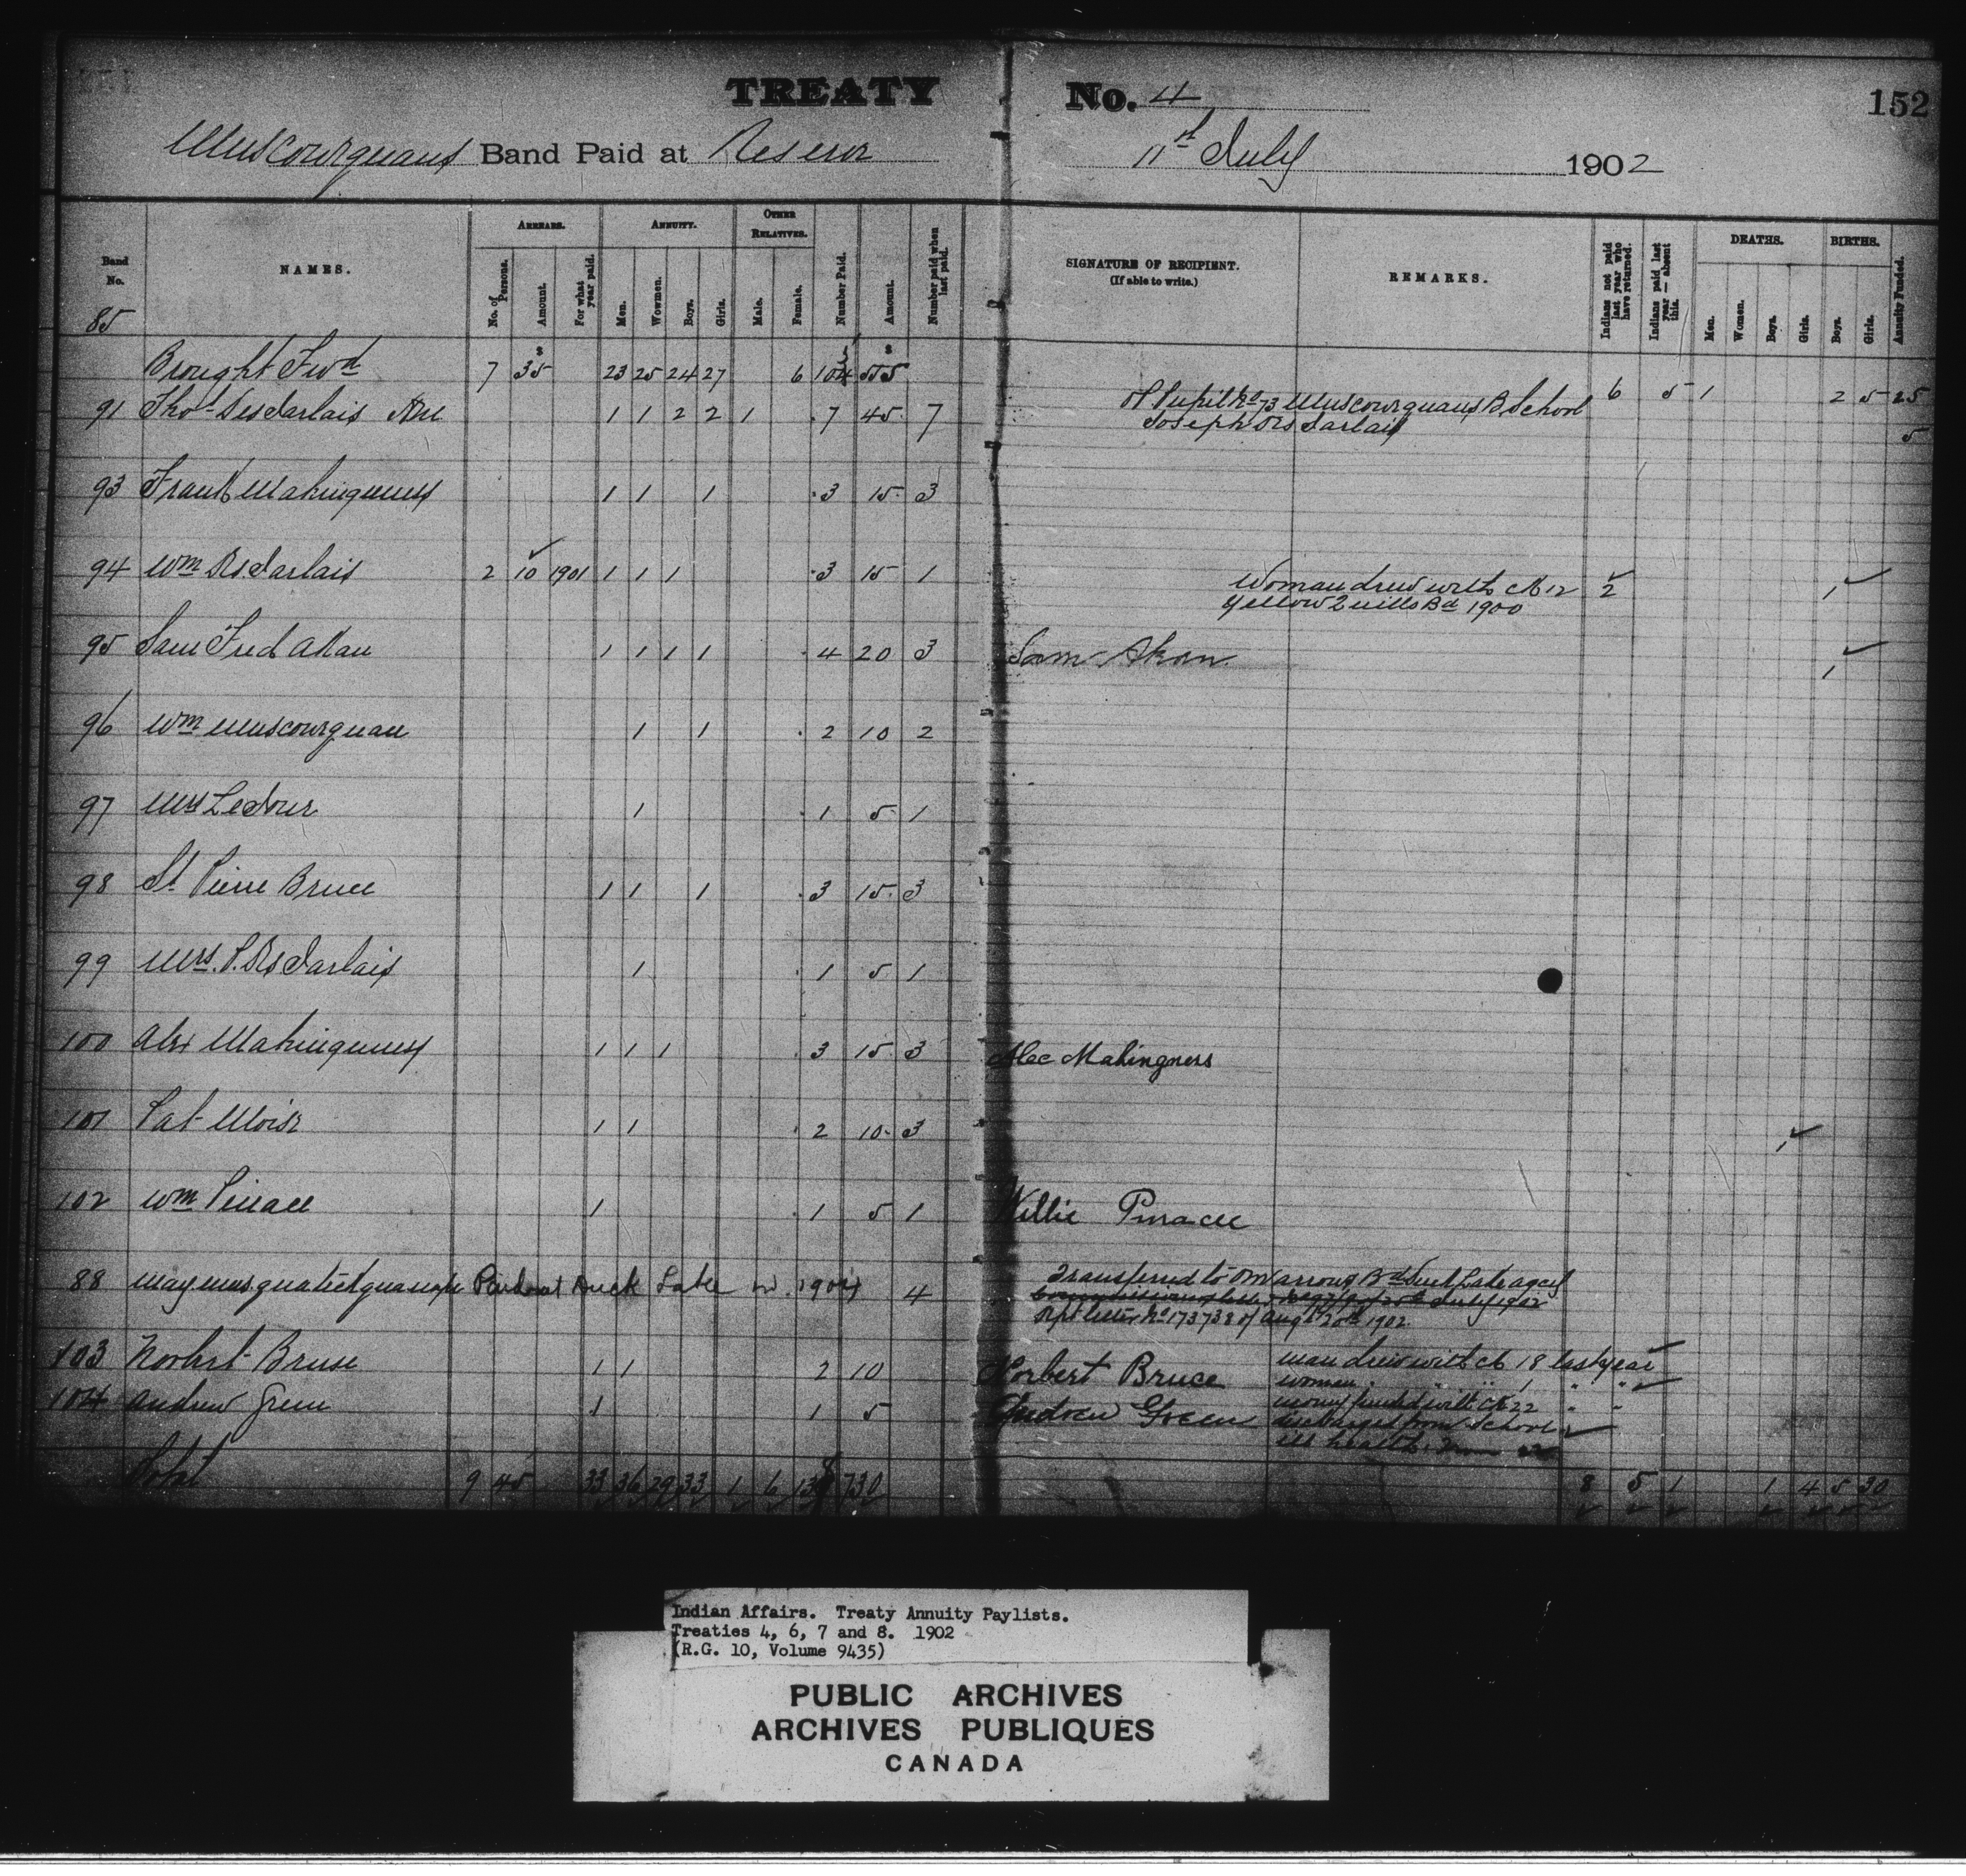 TREATY No. 4 152
Muscowequans Band Paid at Reserve 11th July 1902
Band No. NAMES. ARREARS. No. of Persons. Amount. For what year paid. ANNUITY. Men. Women. Boys. Girls. OTHER RELATIVES. Male. Female. Number Paid. Amount. Number paid when last paid. SIGNATURE OF RECIPIENT. (If able to write.) REMARKS. Indians not paid last year who have returned. Indians paid last year — absent this. DEATHS. Men. Women. Boys. Girls. BIRTHS. Boys. Girls. Annuity Funded.
85
Brought Fwd 7 35 23 25 24 27 6 555 6 5 1 2 5 25
91 Thos Desjarlais 1 1 2 2 1 7 45 7 Pupil No 73 Muscowequans B School 5
Joseph Desjarlais
93 Frank Mahingness 1 1 1 3 15 3
94 Wm Desjarlais 2 10 1901 1 1 1 3 15 1 Woman drew with No 12 2 1
Yellow Quills Bd 1900
95 Sam Fred Akan 1 1 1 1 4 20 3 Sam Akan 1
96 Wm Muscowequan 1 1 2 10 2
97 Mrs Ledour 1 1 5 1
98 St Pierre Bruce 1 1 1 3 15 3
99 Mrs. P. Desjarlais 1 1 5 1
100 Alex Mahingness 1 1 1 3 15 3 Alec Mahingness
101 Pat Moise 1 1 2 10 3 1
102 Wm Pinace 1 1 5 1 Willie Pinacee
88 Paid at Duck Lake in 1904 4 Transferred to One Arrows Bd Duck Lake agcy
Dpt letter No 173738 of Augt 20th 1902
103 Norbert Bruse 1 1 2 10 Norbert Bruce man drew with No 18 last year
woman " " 1 " "
104 Andrew Green 1 1 5 Andrew Green money funded with No 22 " "
discharged from School
ill health
Total 9 45 33 36 29 33 1 6 138 730 8 5 1 1 4 5 30
Indian Affairs. Treaty Annuity Paylists.
Treaties 4, 6, 7 and 8. 1902
(R.G. 10, Volume 9435)
PUBLIC ARCHIVES
ARCHIVES PUBLIQUES
CANADA